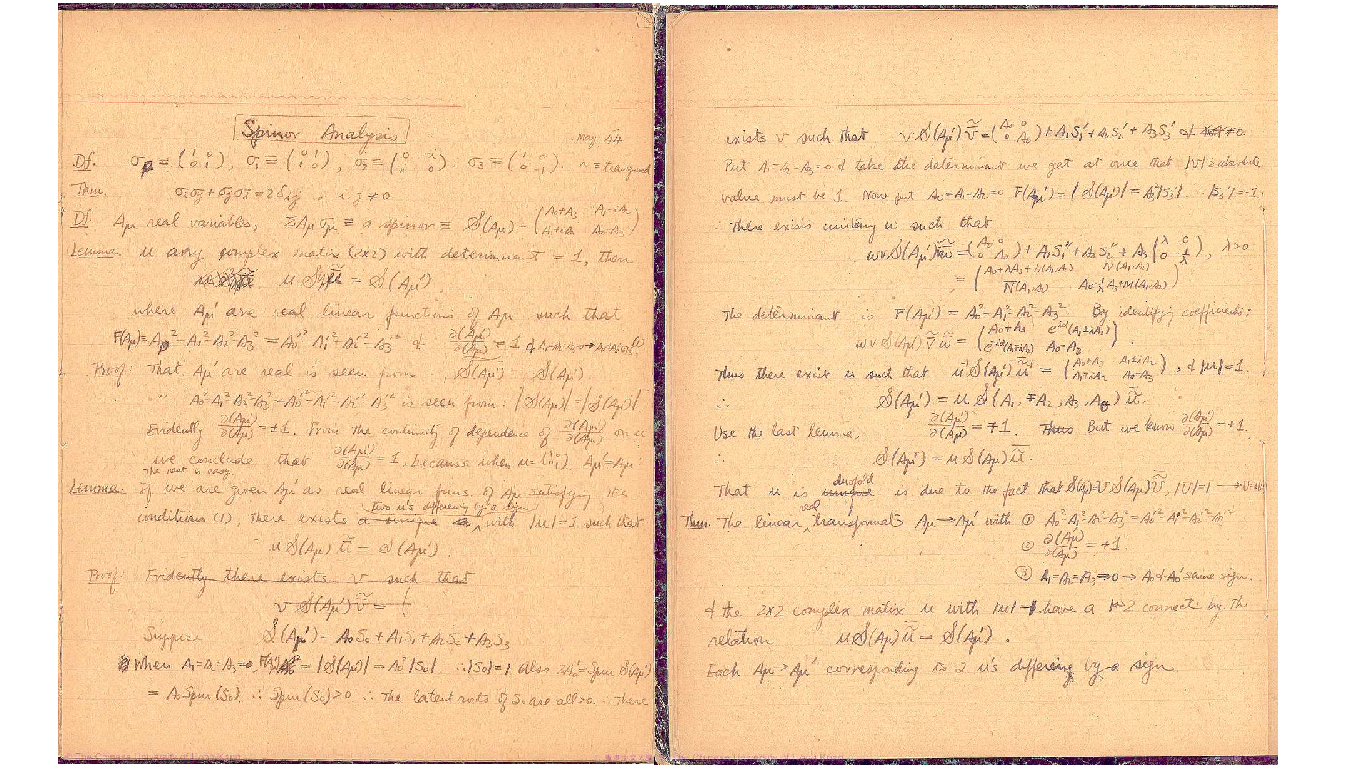 Spinor Analysis
May 44
Df. σ₀ = (1 0 / 0 1), σ₁ = (0 1 / 1 0), σ₂ = (0 / 0), σ₃ = (1 0 / 0 -1).
Then σᵢσⱼ + σⱼσᵢ = 2δᵢⱼ i, j ≠ 0
Df Aμ real variables, ΣAμσμ ≡ a spinor ≡ S(Aμ) = (A₀+A₃ A₁-iA₂ / A₁+iA₂ A₀-A₃)
Lemma. u any complex matrix (2x2) with determinant = 1, then
u S(Aμ) ũ = S(Aμ'),
where Aμ' are real linear functions of Aμ such that
F(Aμ) = A₀² - A₁² - A₂² - A₃² = A₀'² - A₁'² - A₂'² - A₃'² & ∂(Aμ')/∂(Aμ) = 1
Proof: That Aμ' are real is seen from S(Aμ') S(Aμ')
" A₀²-A₁²-A₂²-A₃² = A₀'²-A₁'²-A₂'²-A₃'² is seen from: |S(Aμ)| = |S(Aμ')|
Evidently ∂(Aμ')/∂(Aμ) = ±1. From the continuity of dependence of ∂(Aμ')/∂(Aμ) on u
we conclude that ∂(Aμ')/∂(Aμ) = 1, because when u = (1 0 / 0 1), Aμ' = Aμ
The rest is easy.
Lemma. If we are given Aμ' as real linear funs. of Aμ satisfying the
two u's differing by a sign
conditions (1), there exists a unique u with |u| = 1 such that
u S(Aμ) ũ = S(Aμ').
Proof: Evidently there exists v such that
v S(Aμ') ṽ =
Suppose S(Aμ') = A₀S₀ + A₁S₁ + A₂S₂ + A₃S₃
When A₁=A₂=A₃=0 F(Aμ') = |S(Aμ')| = A₀²|S₀| ∴ |S₀| = 1. Also 2A₀' = Spur S(Aμ')
= A₀ Spur (S₀). ∴ Spur (S₀) > 0 ∴ The latent roots of S₀ are all > 0. ∴ There
exists v such that v S(Aμ') ṽ = (A₀ 0 / 0 A₀) + A₁S₁' + A₂S₂' + A₃S₃'
Put A₁=A₂=A₃=0 & take the determinant we get at once that |v|'s absolute
value must be 1. Now put A₀=A₁=A₂=0 F(Aμ') = |S(Aμ')| = A₃²|S₃'| ∴ |S₃'| = -1.
∴ There exists unitary w such that
wv S(Aμ') ṽw̃ = (A₀ 0 / 0 A₀) + A₁S₁'' + A₂S₂'' + A₃(λ 0 / 0), λ>0
= (A₀+λA₃+M(A₁,A₂) N(A₁,A₂) / N(A₁,A₂) A₀-A₃+M(A₁,A₂))
The determinant is F(Aμ') = A₀²-A₁²-A₂²-A₃² By identifying coefficients:
wv S(Aμ') ṽ w̃ = (A₀+A₃ / A₀-A₃).
Thus there exist u such that u S(Aμ') ũ = (A₀+A₃ A₁±iA₂ / A₁∓iA₂ A₀-A₃), & |u|=1.
∴ S(Aμ') = u S(A₁, ∓A₂, A₃, A₀) ũ.
Use the last lemma, ∂(Aμ')/∂(Aμ) = ∓1. Thus But we know ∂(Aμ')/∂(Aμ) = +1.
∴ S(Aμ') = u S(Aμ) ũ.
twofold
That u is unique is due to the fact that S(Aμ) = V S(Aμ) Ṽ, |V|=1
real
Then. The linear transformats Aμ → Aμ' with ① A₀²-A₁²-A₂²-A₃² = A₀'²-A₁'²-A₂'²-A₃'²
② ∂(Aμ')/∂(Aμ) = +1
③ A₁=A₂=A₃=0 → A₀ & A₀' same sign.
& the 2x2 complex matix u with |u| = 1 have a 1-2 connect by the
relation u S(Aμ) ũ = S(Aμ').
Each Aμ → Aμ' corresponding to 2 u's differing by a sign